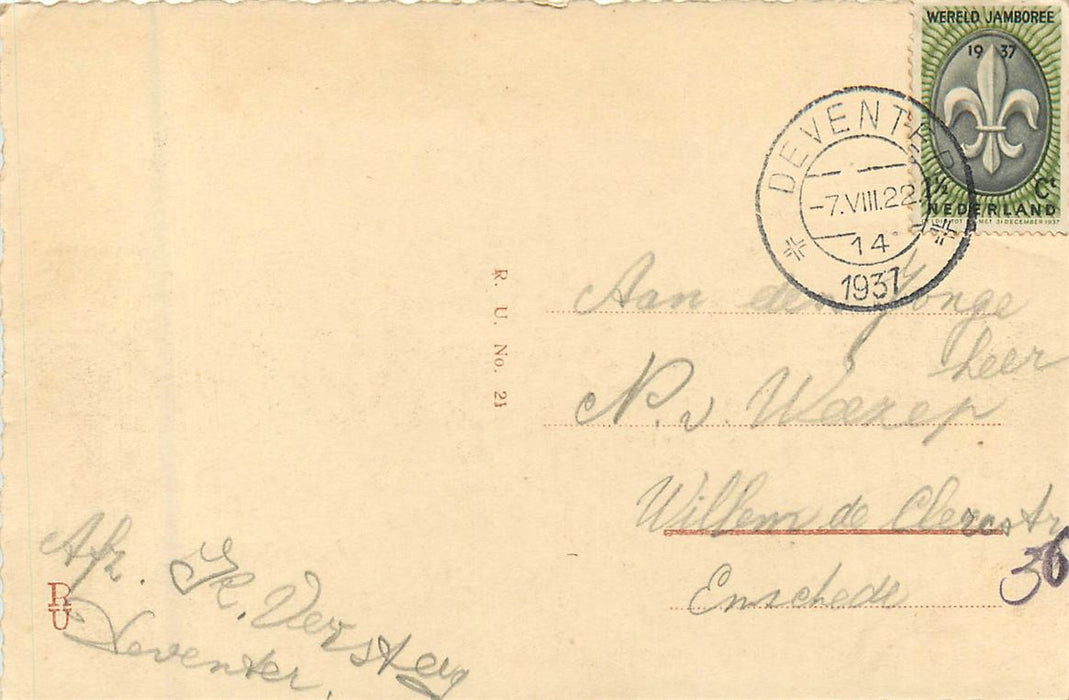 WERELD JAMBOREE
1937
1½ Ct
NEDERLAND
DEVENTER
-7.VIII.22
14
1937
R. U. No. 21
Aan den Jonge
heer
N. v. Weezep
Willem de Clercstr
36
Enschede
Afz. K. Versteeg
Deventer.
RU